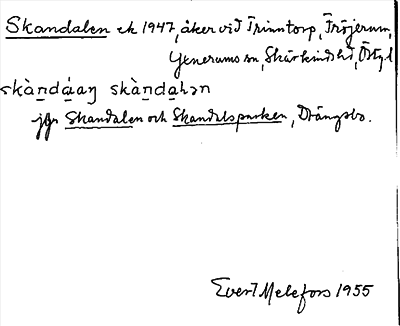 Skandalen ek 1947, åker vid Trinntorp, Fröjerum,
Yxnerums sn, Skärkinds hd, Östgl
skàndáaŋ skàndahən
jfr Skandalen och Skandalsparken, Drängsbo.
Evert Melefors 1955